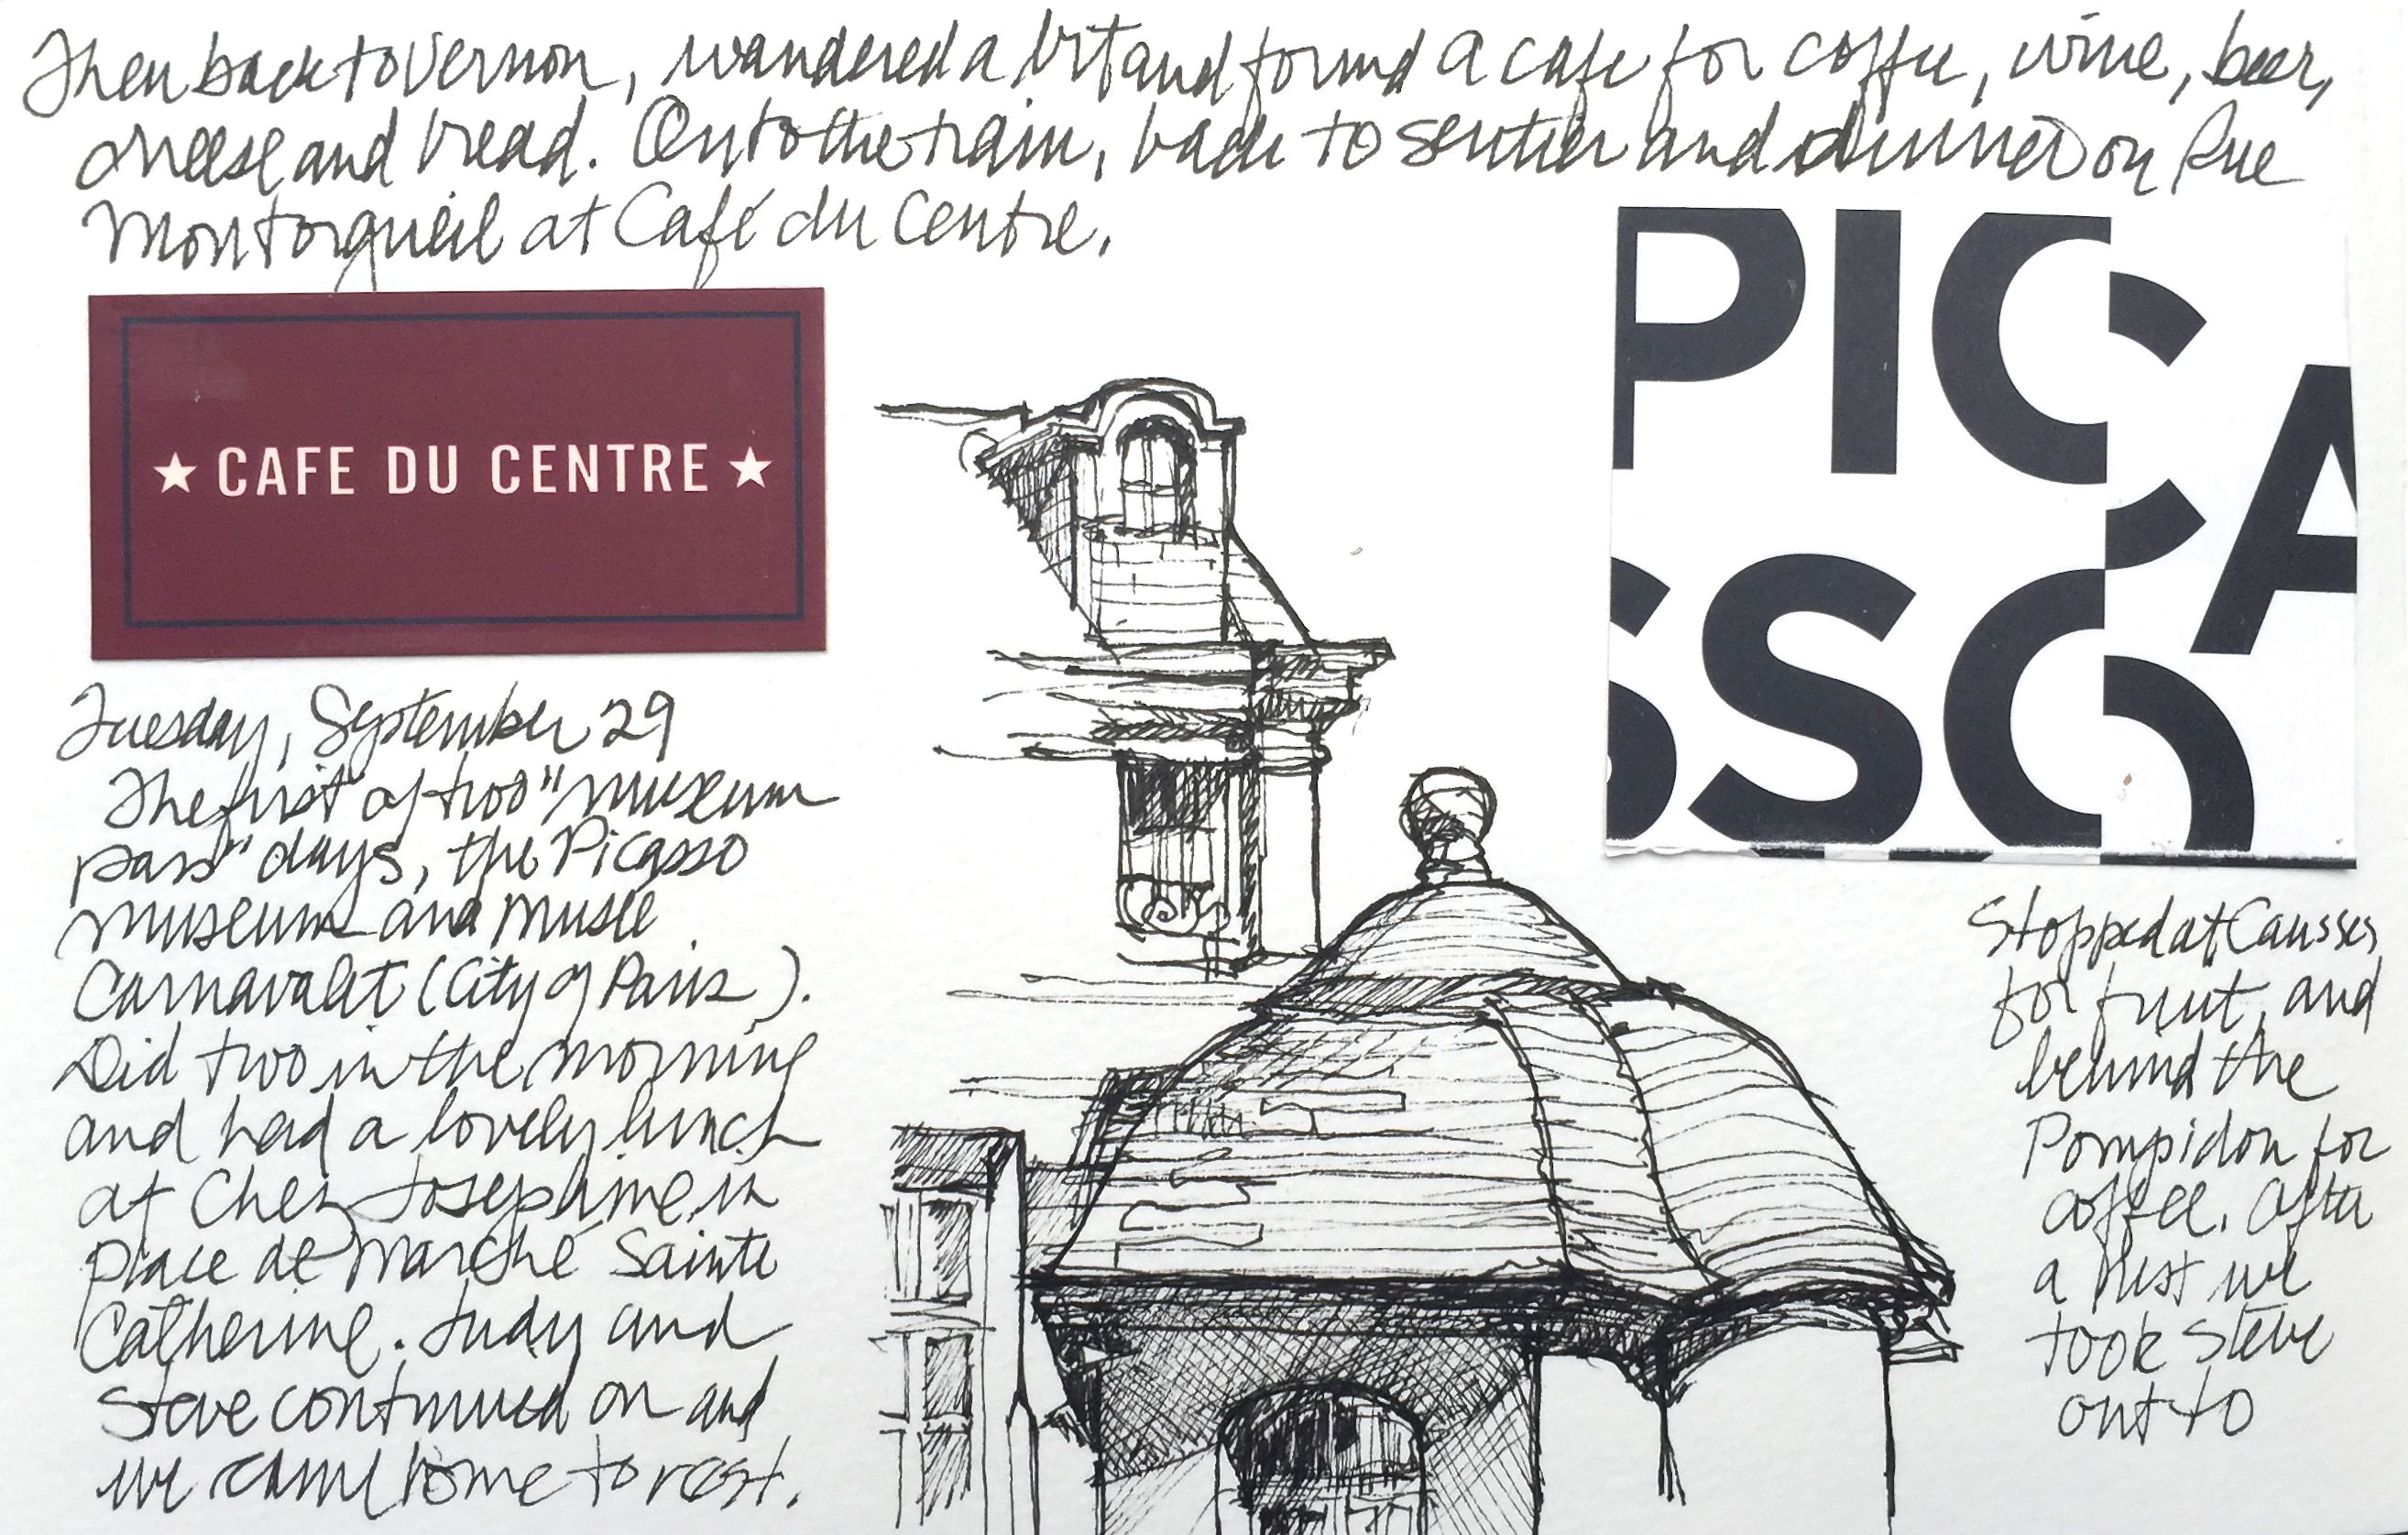 Then back to Vernon, wandered a bit and found a cafe for coffee, wine, beer,
cheese and bread. Onto the train, back to Sentier and dinner on Rue
Montorgueil at Café du Centre.
★ CAFE DU CENTRE ★
PICA
SSO
Tuesday, September 29
The first of two "museum
pass" days, the Picasso
Museum and Musée
Carnavalet (City of Paris).
Did two in the morning
and had a lovely lunch
at Chez Joséphine in
Place de Marché Sainte
Catherine. Judy and
Steve continued on and
we came home to rest.
Stopped at Causses
for fruit, and
behind the
Pompidou for
coffee. After
a rest we
took Steve
out to